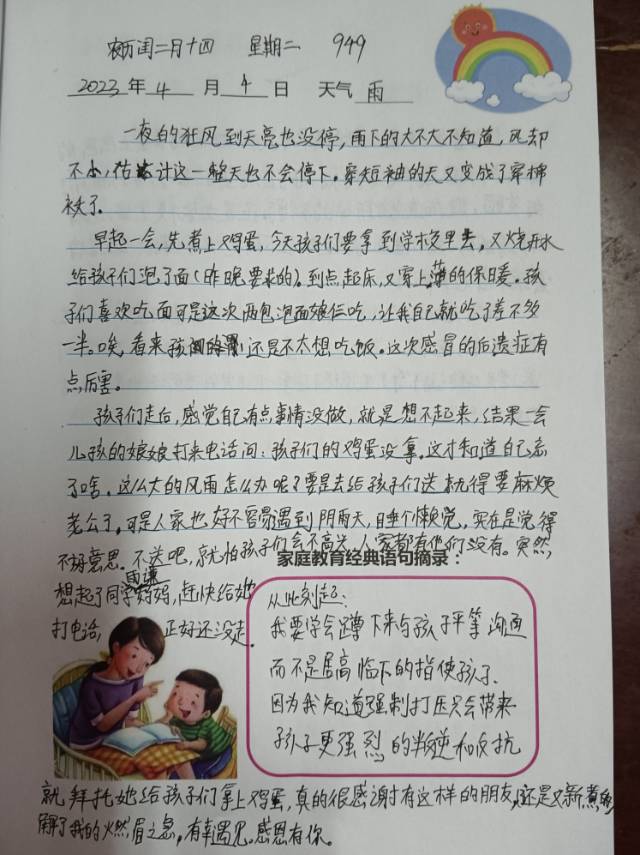 农历闰二月十四 星期二 949
2023年4月4日 天气雨
一夜的狂风到天亮也没停,雨下的大不大不知道,风却
不小,估计这一整天也不会停下。穿短袖的天又变成了穿棉
袄了。
早起一会,先煮上鸡蛋,今天孩子们要拿到学校里去,又烧开水
给孩子们泡了面(昨晚要求的)。到点起床,又穿上薄的保暖。孩
子们喜欢吃面可是这次两包泡面娘仨吃,让我自己就吃了差不多
一半。唉,看来孩 还是不太想吃饭。这次感冒的后遗症有
点厉害。
孩子们走后,感觉自己有点事情没做,就是想不起来,结果一会
儿孩的娘娘打来电话问:孩子们的鸡蛋没拿。这才知道自己忘
了啥。这么大的风雨怎么办呢?要是去给孩子们送就得要麻烦
老公了,可是人家也好不容易遇到阴雨天,睡个懒觉,实在是觉得
不好意思。不送吧,就怕孩子们会不高兴,人家都有他们没有。突然,
家庭教育经典语句摘录:
想起了同学雨谦妈妈,赶快给她
打电话,正好还没走。
从此刻起:
我要学会蹲下来与孩子平等沟通
而不是居高临下的指使孩子.
因为我知道强制打压只会带来
孩子更强烈的叛逆和反抗
就拜托她给孩子们拿上鸡蛋,真的很感谢有这样的朋友,还是又新煮的
解了我的燃眉之急,有幸遇见。感恩有你。